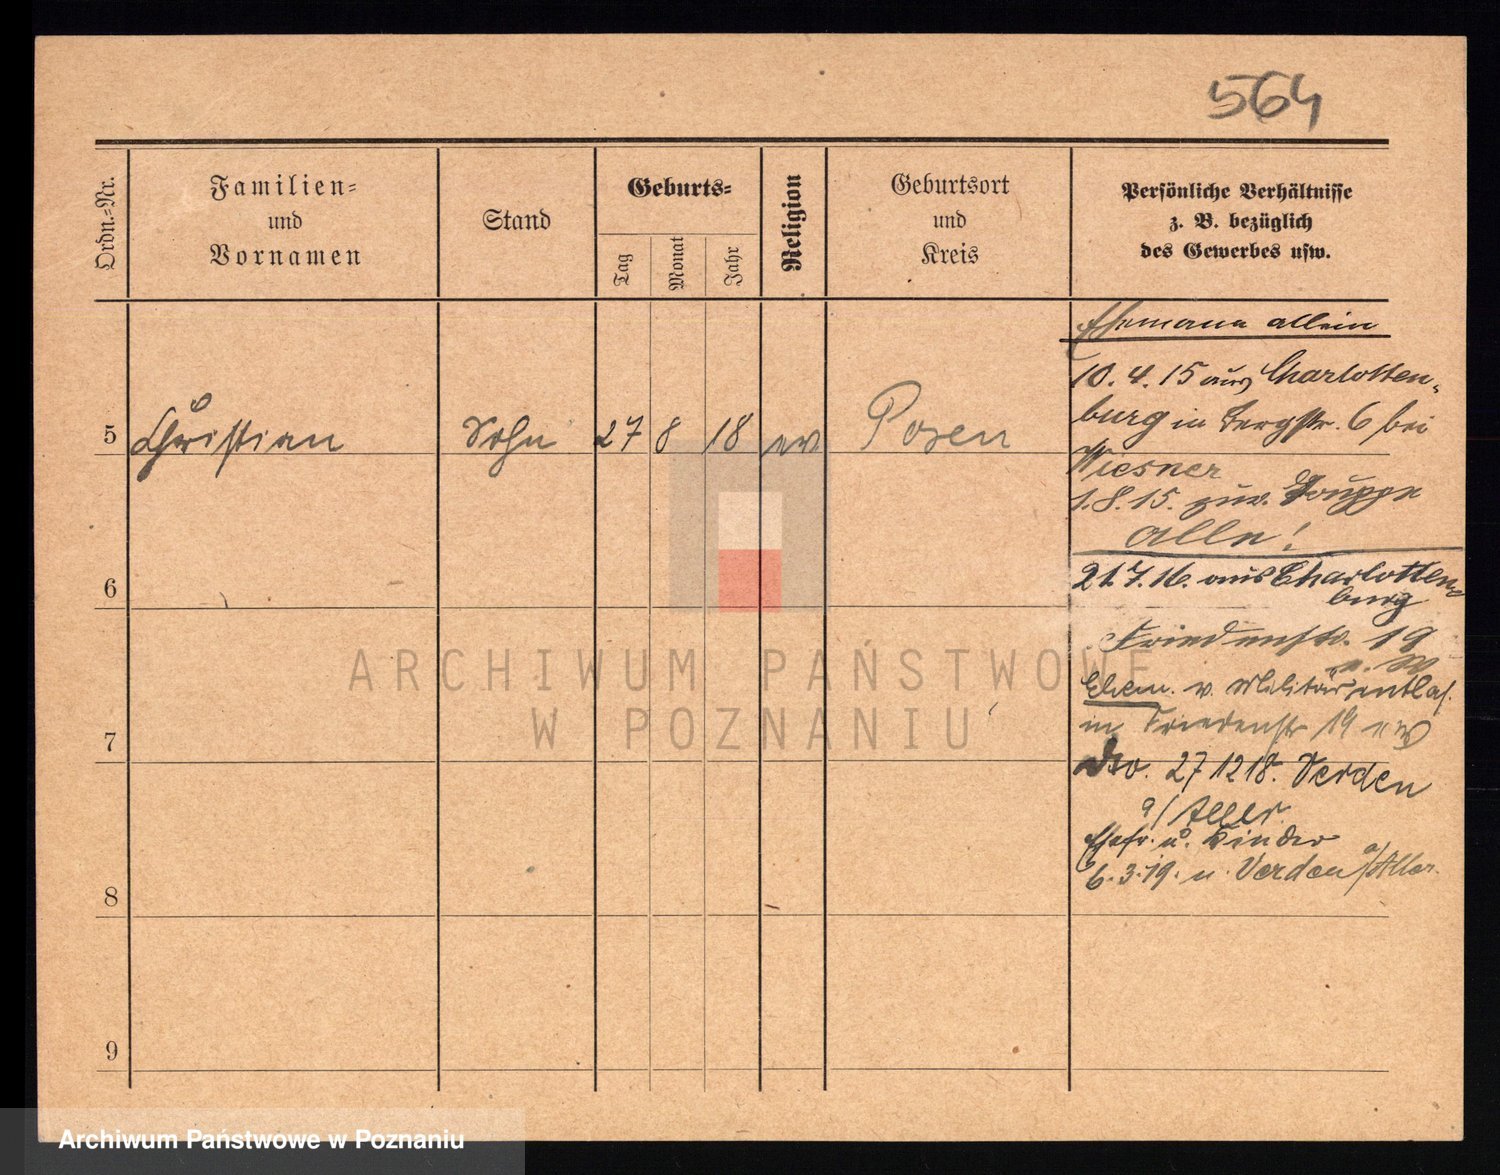 564
Ordn.=Nr.
Familien=
und
Vornamen
Stand
Geburts=
Tag
Monat
Jahr
Religion
Geburtsort
und
Kreis
Persönliche Verhältnisse
z. B. bezüglich
des Gewerbes usw.
Ehemann allein
10.4.15 aus Charlotten-
burg in Bergstr. 6 bei
Wiesner
1.8.15. zur. Truppe
alle!
5 Christian Sohn 27 8 18 ev Posen
21.7.16. aus Charlotten-
burg
Friedenstr. 19
Ehem. v. Militär entlas.
in Friedenstr 19
27 12 18. Verden
a/ Aller.
Ehefr. u. Kinder
6.3.19. n. Verden a/Aller.
6
7
8
9
ARCHIWUM PAŃSTWOWE
W POZNANIU
Archiwum Państwowe w Poznaniu